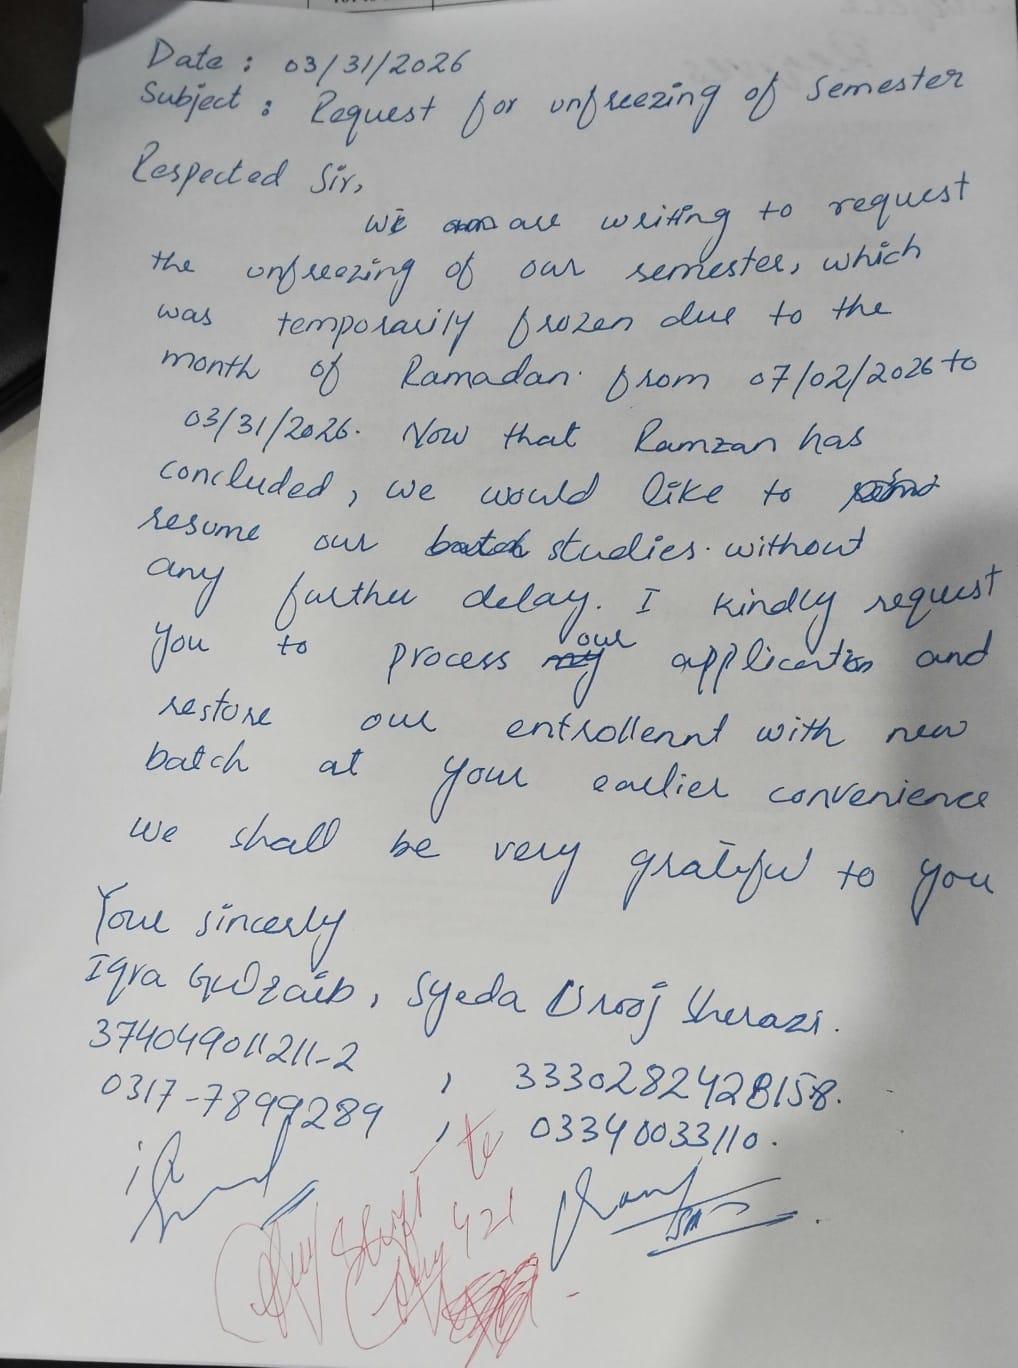 Date : 03/31/2026
Subject : Request for unfreezing of semester
Respected Sir,
We are writing to request
the unfreezing of our semester, which
was temporarily frozen due to the
month of Ramadan. from 07/02/2026 to
03/31/2026. Now that Ramzan has
concluded, we would like to
resume our batch studies. without
any further delay. I kindly request
you to process our application and
restore our entrollennt with new
batch at your earlier convenience
We shall be very grateful to you
Your sincerly
Iqra Gulzaib, Syeda Urooj Sherazi.
374049011211-2
, 3330282428158.
0317-7899289 , 03340033110.